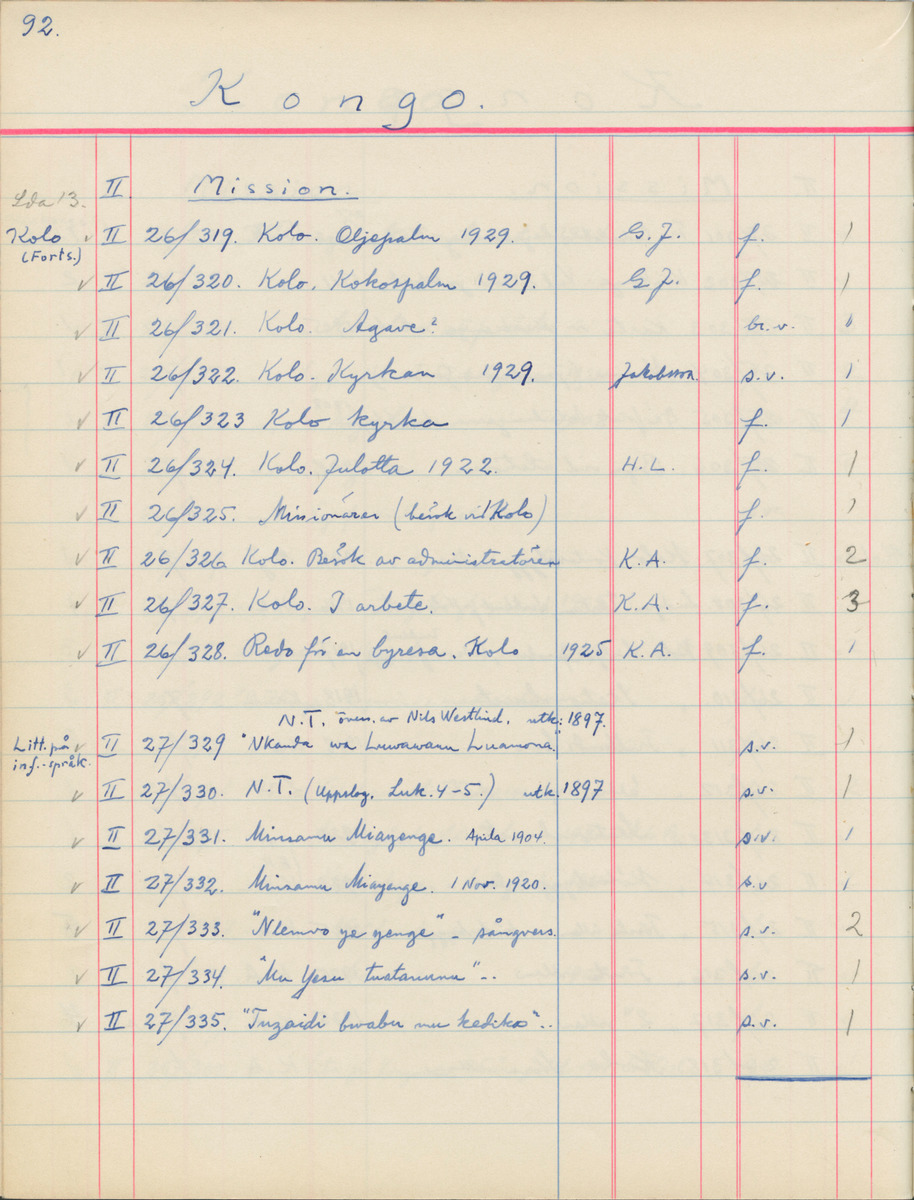 92.
Kongo.
Lda 13. II. Mission.
Kolo ✓ II 26/319. Kolo. Oljepalm 1929. G.J. f. 1
(Forts.)
✓ II 26/320. Kolo. Kokospalm 1929. G.J. f. 1
✓ II 26/321. Kolo. Agave? br.v.
✓ II 26/322. Kolo. Kyrkan 1929. Jakobsson. s.v. 1
✓ II 26/323 Kolo kyrka f. 1
✓ II 26/324. Kolo. Julotta 1922. H.L. f. 1
✓ II 26/325. Missionärer (besök vid Kolo) f. 1
✓ II 26/326 Kolo. Besök av administratören K.A. f. 2
✓ II 26/327. Kolo. I arbete. K.A. f. 3
✓ II 26/328. Redo för en byresa. Kolo 1925 K.A. f. 1
N.T. övers. av Nils Westlind. utk: 1897.
Litt. på ✓ II 27/329 "Nkanda wa Luwawanu Luamona. s.v. 1
inf.-språk.
✓ II 27/330. N.T. (Uppslag. Luk. 4-5.) utk. 1897 s.v. 1
✓ II 27/331. Minsamu Miayenge. Apila 1904. s.v. 1
✓ II 27/332. Minsamu Miayenge. 1 Nov. 1920. s.v 1
✓ II 27/333. "Nlemvo ye yenge" - sångvers. s.v. 2
✓ II 27/334. "Mu Yesu tuatanunu" -.. s.v. 1
✓ II 27/335. "Tuzaidi bwabu mu kedika".. s.v. 1